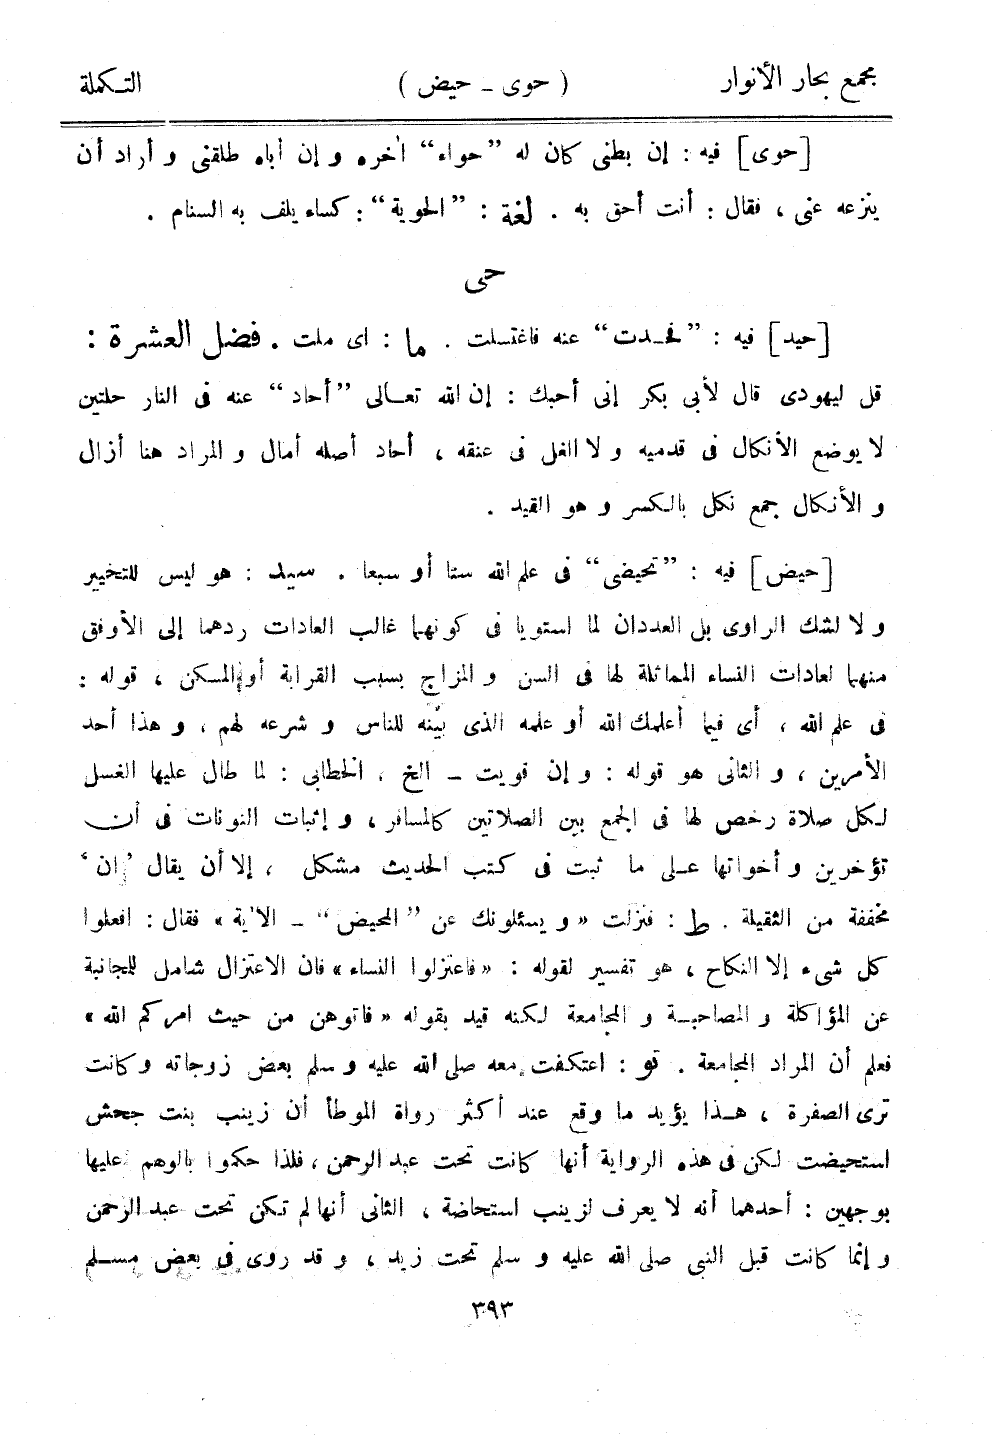 مجمع بحار الأنوار ( حوى ـ حيض ) التكملة
[حوى] فيه : إن بطنى كان له ”حواء“ أخره و إن أباه طلقنى و أراد أن
ينزعه عنى ، فقال : أنت أحق به . لغة : ”الحوية“ : كساء يلف به السنام .
حى
[حيد] فيه : ”فحدت“ عنه فاغتسلت . ما : اى ملت . فضل العشرة :
قل ليهودى قال لأبى بكر إنى أحبك : إن الله تعالى ”أحاد“ عنه فى النار حلتين
لا يوضع الأنكال فى قدميه و لا الغل فى عنقه ، أحاد أصله أمال و المراد هنا أزال
و الأنكال جمع نكل بالكسر و هو القيد .
[حيض] فيه : ”تحيضى“ فى علم الله ستا أو سبعا . سيد : هو ليس للتخيير
و لا لشك الراوى بل العددان لما استويا فى كونهما غالب العادات ردهما إلى الأوفق
منهما لعادات النساء المماثلة لها فى السن و المزاج بسبب القرابة أو المسكن ، قوله :
فى علم الله ، أى فيما أعلمك الله أو علمه الذى بيّنه للناس و شرعه لهم ، و هذا أحد
الأمرين ، و الثانى هو قوله : و إن قويت ـ الخ ، الخطابى : لما طال عليها الغسل
لكل صلاة رخص لها فى الجمع بين الصلاتين كالمسافر ، و إثبات النونات فى أن
تؤخرين و أخواتها على ما ثبت فى كتب الحديث مشكل ، إلا أن يقال ’ان‘
مخففة من الثقيلة . ط : فنزلت « و يسئلونك عن ”المحيض“ ـ الاٰية » فقال : افعلوا
كل شىء إلا النكاح ، هو تفسير لقوله : « فاعتزلوا النساء » فان الاعتزال شامل للمجانبة
عن المؤاكلة و المصاحبة و المجامعة لكنه قيد بقوله « فاتوهن من حيث امركم الله »
فعلم أن المراد المجامعة . تو : اعتكفت معه صلى الله عليه و سلم بعض زوجاته و كانت
ترى الصفرة ، هذا يؤيد ما وقع عند أكثر رواة الموطأ أن زينب بنت جحش
استحيضت لكن فى هذه الرواية أنها كانت تحت عبد الرحمن ، فلذا حكموا بالوهم عليها
بوجهين : أحدهما أنه لا يعرف لزينب استحاضة ، الثانى أنها لم تكن تحت عبد الرحمن
و إنما كانت قبل النبى صلى الله عليه و سلم تحت زيد ، و قد روى فى بعض مسلم
٣٩٣